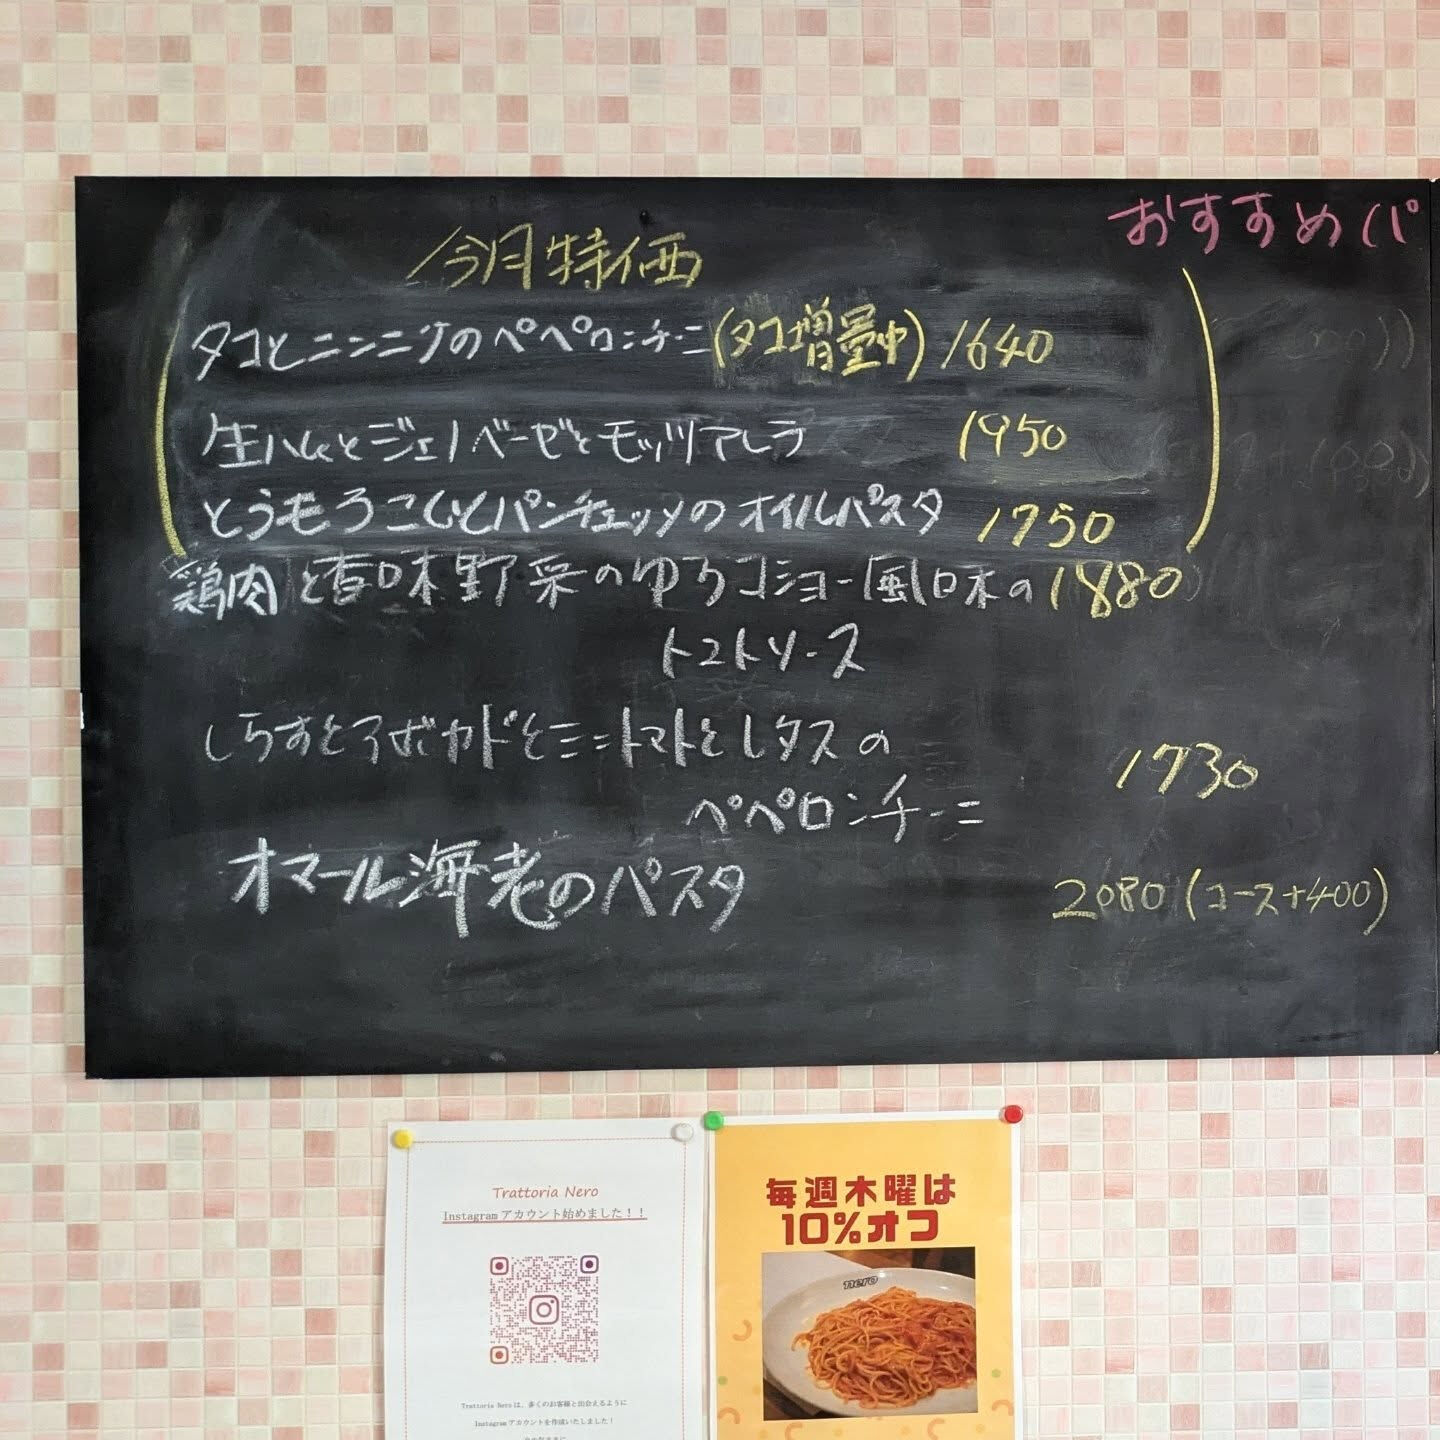 おすすめパ
今月特価
タコとニンニクのペペロンチーニ(タコ増量中) 1640
生ハムとジェノベーゼとモッツアレラ 1950
とうもろこしとパンチェッタのオイルパスタ 1750
鶏肉と香味野菜のゆずコショー風味の 1880
トマトソース
しらすとアボカドとミニトマトとレタスの
ペペロンチーニ 1730
オマール海老のパスタ 2080 (コース+400)
Trattoria Nero
Instagramアカウント始めました！！
Trattoria Neroは、多くのお客様と出会えるように
Instagramアカウントを作成いたしました！
毎週木曜は
10%オフ
nero